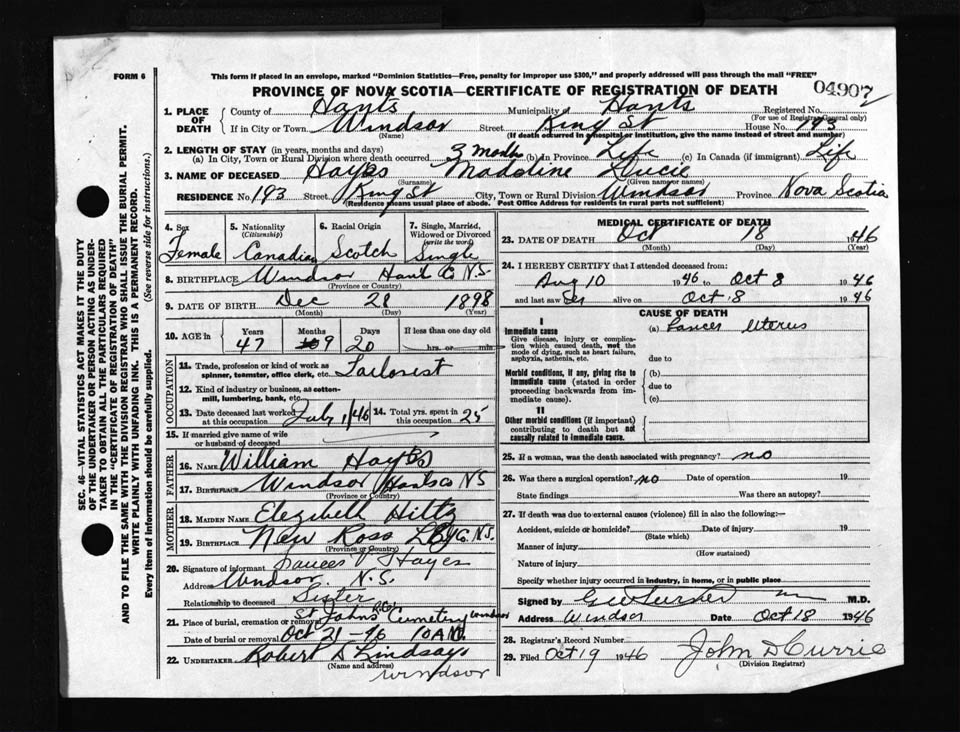 FORM 6
This form if placed in an envelope, marked "Dominion Statistics—Free, penalty for improper use $300," and properly addressed will pass through the mail "FREE"
PROVINCE OF NOVA SCOTIA—CERTIFICATE OF REGISTRATION OF DEATH
04907
1. PLACE OF DEATH County of Hants Municipality of Hants Registered No.
(For use of Registrar General only)
If in City or Town Windsor Street King St House No. 193
(Name) (If death occurred in a hospital or institution, give the name instead of street and number)
2. LENGTH OF STAY (in years, months and days)
(a) In City, Town or Rural Division where death occurred 3 Months (b) in Province Life (c) in Canada (if immigrant) Life
3. NAME OF DECEASED Hayes Madeline Lucie
(Surname) (Given name or names)
RESIDENCE No. 193 Street King St City, Town or Rural Division Windsor Province Nova Scotia
(Residence means usual place of abode. Post Office Address for residents in rural parts not sufficient)
SEC. 46—VITAL STATISTICS ACT MAKES IT THE DUTY
OF THE UNDERTAKER OR PERSON ACTING AS UNDER-
TAKER TO OBTAIN ALL THE PARTICULARS REQUIRED
IN THE "CERTIFICATE OF REGISTRATION OF DEATH"
AND TO FILE THE SAME WITH THE DIVISION REGISTRAR WHO SHALL ISSUE THE BURIAL PERMIT.
WRITE PLAINLY WITH UNFADING INK. THIS IS A PERMANENT RECORD.
Every item of information should be carefully supplied. (See reverse side for instructions.)
4. Sex 5. Nationality 6. Racial Origin 7. Single, Married,
(Citizenship) Widowed or Divorced
(write the word)
Female Canadian Scotch Single
8. BIRTHPLACE Windsor Hants Co N.S
(Province or Country)
9. DATE OF BIRTH Dec 28 1898
(Month) (Day) (Year)
10. AGE in Years Months Days If less than one day old
47 9 20 hrs. or min.
OCCUPATION
11. Trade, profession or kind of work as
spinner, teamster, office clerk, etc. Tailorist
12. Kind of industry or business, as cotton-
mill, lumbering, bank, etc.
13. Date deceased last worked
at this occupation July 1/46 14. Total yrs. spent in
this occupation 25
15. If married give name of wife
or husband of deceased
FATHER
16. NAME William Hayes
17. BIRTHPLACE Windsor Hants Co NS
(Province or Country)
MOTHER
18. MAIDEN NAME Elezibeth Hiltz
19. BIRTHPLACE New Ross Co. N.S.
(Province or Country)
20. Signature of informant Hayes
Address Windsor. N.S.
Relationship to deceased Sister
21. Place of burial, cremation or removal St Johns Cemetery Windsor
Date of burial or removal Oct 21-46 10 AM.
22. UNDERTAKER Robert S Lindsay
(Name and address)
Windsor
MEDICAL CERTIFICATE OF DEATH
23. DATE OF DEATH Oct 18 1946
(Month) (Day) (Year)
24. I HEREBY CERTIFY that I attended deceased from:
Aug 10 1946 to Oct 8 1946
and last saw her alive on Oct 8 1946
CAUSE OF DEATH
I
Immediate cause (a) Cancer Uterus
Give disease, injury or complica-
tion which caused death, not the
mode of dying, such as heart failure,
asphyxia, asthenia, etc. due to
Morbid conditions, if any, giving rise to (b)
immediate cause (stated in order due to
proceeding backwards from im-
mediate cause). (c)
II
Other morbid conditions (if important)
contributing to death but not
causally related to immediate cause.
25. If a woman, was the death associated with pregnancy? no
26. Was there a surgical operation? no Date of operation 19
State findings Was there an autopsy?
27. If death was due to external causes (violence) fill in also the following:—
Accident, suicide or homicide? Date of injury 19
(State which)
Manner of injury
(How sustained)
Nature of injury
Specify whether injury occurred in industry, in home, or in public place
Signed by G W Turner M.D.
Address Windsor Date Oct 18 1946
28. Registrar's Record Number
29. Filed Oct 19 1946 John D Currie
(Division Registrar)